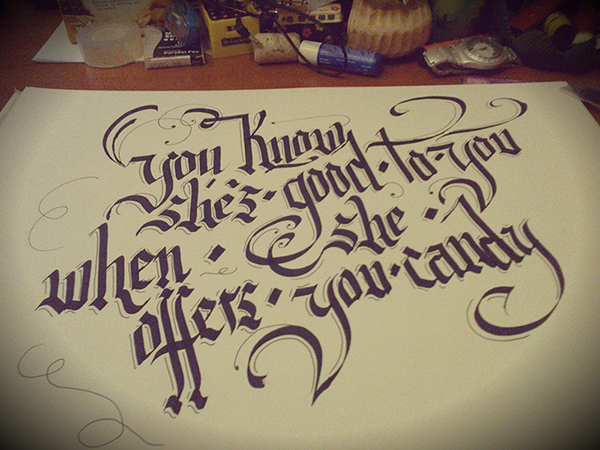 you Know
she's·good·to·you
when·she·
offers·you·candy
Parallel Pen